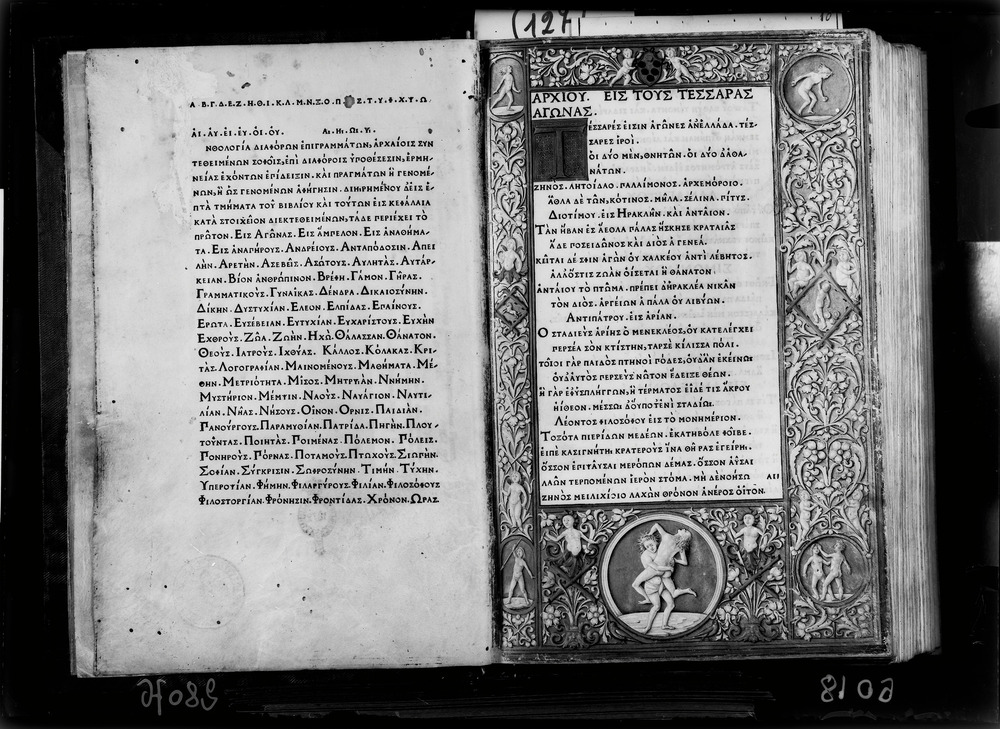 (127)
Α.Β.Γ.Δ.Ε.Ζ.Η.Θ.Ι.Κ.Λ.Μ.Ν.Ξ.Ο.Π Σ.Τ.Υ.Φ.Χ.Υ.Ω
ΑΙ.ΑΥ.ΕΙ.ΕΥ.ΟΙ.ΟΥ. Αι.Ηι.Ωι.Υι.
ΝΘΟΛΟΓΊΑ ΔΙΑΦΌΡΩΝ ἘΠΙΓΡΑΜΜΆΤΩΝ, ἈΡΧΑΊΟΙΣ ΣΥΝ
ΤΕΘΕΙΜΈΝΩΝ ΣΟΦΟΪ͂Σ, ἘΠῚ ΔΙΑΦΌΡΟΙΣ ὙΠΟΘΈΣΕΣΙΝ, ἙΡΜΗ-
ΝΕΊΑΣ ἘΧΌΝΤΩΝ ἘΠΊΔΕΙΞΙΝ. ΚΑῚ ΠΡΑΓΜΆΤΩΝ Ἢ ΓΕΝΟΜΈ-
ΝΩΝ, Ἢ ὩΣ ΓΕΝΟΜΈΝΩΝ ἈΦΉΓΗΣΙΝ. ΔΙΗΡΗΜΈΝΟΥ ΔῈ ΕἸΣ Ἑ-
ΠΤᾺ ΤΜΉΜΑΤΑ ΤΟΥ͂ ΒΙΒΛΊΟΥ ΚΑῚ ΤΟΎΤΩΝ ΕἸΣ ΚΕΦΆΛΑΙΑ
ΚΑΤᾺ ΣΤΟΙΧΕΪ͂ΟΝ ΔΙΕΚΤΕΘΕΙΜΈΝΩΝ, ΤΆΔΕ ΠΕΡΙΈΧΕΙ ΤῸ
ΠΡΩ͂ΤΟΝ. ΕἸΣ ἈΓΩ͂ΝΑΣ. ΕἸΣ ἌΜΠΕΛΟΝ. ΕἸΣ ἈΝΑΘΉΜΑ-
ΤΑ. ΕἸΣ ἈΝΑΠΉΡΟΥΣ. ἈΝΔΡΕΊΟΥΣ. ἈΝΤΑΠΌΔΟΣΙΝ. ἈΠΕΙ
ΛΉΝ. ἈΡΕΤΉΝ. ἈΣΕΒΕΪ͂Σ. ἈΣΏΤΟΥΣ. ΑὐΛΗΤΆΣ. ΑὐΤΆΡ-
ΚΕΙΑΝ. ΒΊΟΝ ἈΝΘΡΏΠΙΝΟΝ. ΒΡΈΦΗ. ΓΆΜΟΝ. ΓΗ͂ΡΑΣ.
ΓΡΑΜΜΑΤΙΚΟΎΣ. ΓΥΝΑΪ͂ΚΑΣ. ΔΈΝΔΡΑ. ΔΙΚΑΙΟΣΎΝΗΝ.
ΔΊΚΗΝ. ΔΥΣΤΥΧΊΑΝ. ἜΛΕΟΝ. ἘΛΠΊΔΑΣ. ἘΠΑΊΝΟΥΣ.
ἜΡΩΤΑ. ΕὐΣΈΒΕΙΑΝ. ΕὐΤΥΧΊΑΝ. ΕὐΧΑΡΊΣΤΟΥΣ. ΕὐΧΉΝ
ἘΧΘΡΟΎΣ. ΖΩ͂Α. ΖΩΉΝ. ἨΧΏ. ΘΆΛΑΣΣΑΝ. ΘΆΝΑΤΟΝ.
ΘΕΟΎΣ. ἸΑΤΡΟΎΣ. ἸΧΘΎΑΣ. ΚΆΛΛΟΣ. ΚΌΛΑΚΑΣ. ΚΡΙ-
ΤΆΣ. ΛΟΓΟΓΡΑΦΊΑΝ. ΜΑΙΝΟΜΈΝΟΥΣ. ΜΑΘΉΜΑΤΑ. ΜΈ-
ΘΗΝ. ΜΕΤΡΙΌΤΗΤΑ. ΜΪ͂ΣΟΣ. ΜΗΤΡΥΙΆΝ. ΜΝΉΜΗΝ.
ΜΥΣΤΉΡΙΟΝ. ΜΈΜΨΙΝ. ΝΑΟΎΣ. ΝΑΥΆΓΙΟΝ. ΝΑΥΤΙ-
ΛΊΑΝ. ΝΗ͂ΑΣ. ΝΉΣΟΥΣ. ΟἾΝΟΝ. ὌΡΝΙΣ. ΠΑΙΔΙΆΝ.
ΠΑΝΟΎΡΓΟΥΣ. ΠΑΡΑΜΥΘΊΑΝ. ΠΑΤΡΊΔΑ. ΠΗΓΉΝ. ΠΛΟΥ-
ΤΟΥ͂ΝΤΑΣ. ΠΟΙΗΤΆΣ. ΠΟΙΜΈΝΑΣ. ΠΌΛΕΜΟΝ. ΠΌΛΕΙΣ.
ΠΟΝΗΡΟΎΣ. ΠΌΡΝΑΣ. ΠΟΤΑΜΟΎΣ. ΠΤΩΧΟΎΣ. ΣΙΩΠΉΝ.
ΣΟΦΊΑΝ. ΣΎΓΚΡΙΣΙΝ. ΣΩΦΡΟΣΎΝΗΝ. ΤΙΜΉΝ. ΤΎΧΗΝ.
ὙΠΕΡΟΨΊΑΝ. ΦΉΜΗΝ. ΦΙΛΑΡΓΎΡΟΥΣ. ΦΙΛΊΑΝ. ΦΙΛΟΣΌΦΟΥΣ
ΦΙΛΟΣΤΟΡΓΊΑΝ. ΦΡΌΝΗΣΙΝ. ΦΡΟΝΤΊΔΑΣ. ΧΡΌΝΟΝ. ὭΡΑΣ
ΑΡΧΙΟΥ. ΕΙΣ ΤΟΥΣ ΤΕΣΣΑΡΑΣ
ΑΓΩΝΑΣ.
ΤΈΣΣΑΡΈΣ ΕἸΣΙΝ ἈΓΩ͂ΝΕΣ ἈΝ᾽ἙΛΛΆΔΑ. ΤΈΣ-
ΣΑΡΕΣ ἹΡΟΊ.
ΟἹ ΔΎΟ ΜῈΝ, ΘΝΗΤΩ͂Ν. ΟἹ ΔΎΟ Δ᾽ἈΘΑ-
ΝΆΤΩΝ.
ΖΗΝῸΣ. ΛΗΤΟΪΔΑΟ. ΠΑΛΑΊΜΟΝΟΣ. ἈΡΧΕΜΌΡΟΙΟ.
ἈΘΛΑ ΔῈ ΤΩ͂Ν, ΚΌΤΙΝΟΣ. ΜΗ͂ΛΑ. ΣΈΛΙΝΑ. ΠΊΤΥΣ.
ΔΙΟΤΊΜΟΥ. ΕἸΣ ἩΡΑΚΛΗ͂Ν. ΚΑῚ ἈΝΤΑΪ͂ΟΝ.
ΤᾺΝ ἭΒΑΝ ΕΣ ἌΕΘΛΑ ΠΆΛΑΣ ἬΣΚΗΣΕ ΚΡΑΤΑΙΑ͂Σ
ἍΔΕ ΠΟΣΕΙΔΩ͂ΝΟΣ ΚΑῚ ΔΙῸΣ Ἁ ΓΕΝΕΆ.
ΚΕΪ͂ΤΑΙ ΔΈ ΣΦΙΝ ἈΓῺΝ ΟὐΧΑΛΚΈΟΥ ἈΝΤῚ ΛΈΒΗΤΟΣ.
ἈΛΛ᾽ὍΣΤΙΣ ΖΩᾺΝ ΟἼΣΕΤΑΙ Ἢ ΘΆΝΑΤΟΝ
ἈΝΤΑΊΟΥ ΤῸ ΠΤΩ͂ΜΑ. ΠΡΈΠΕΙ Δ᾽ἩΡΑΚΛΈΑ ΝΙΚΑ͂Ν
ΤῸΝ ΔΙΌΣ. ἈΡΓΕΊΩΝ Ἁ ΠΆΛΑ ΟὐΛΙΒΎΩΝ.
ἈΝΤΙΠΆΤΡΟΥ. ΕἸΣ ἈΡΊΑΝ.
Ὁ ΣΤΑΔΙΕῪΣ ἈΡΊΗΣ Ὁ ΜΕΝΕΚΛΈΟΣ, ΟὐΚΑΤΕΛΈΓΧΕΙ
ΠΕΡΣΈΑ ΣῸΝ ΚΤΊΣΤΗΝ, ΤΑΡΣΈ ΚΊΛΙΣΣΑ ΠΌΛΙ.
ΤΟΪ͂ΟΙ ΓᾺΡ ΠΑΙΔῸΣ ΠΤΗΝΟῚ ΠΌΔΕΣ, ΟὐΔ᾽ἊΝ ἘΚΕΊΝΩΙ
ΟὐΔ᾽ΑὐΤῸΣ ΠΕΡΣΕῪΣ ΝΩ͂ΤΟΝ ἜΔΕΙΞΕ ΘΈΩΝ.
Ἢ ΓᾺΡ ἘΦ᾽ὙΣΠΛΉΓΓΩΝ, Ἢ ΤΈΡΜΑΤΟΣ ΕἾΔΕ ΤΙΣ ἌΚΡΟΥ
ἨΪΘΕΟΝ. ΜΈΣΣΩΙ Δ᾽ΟὔΠΟΤ᾽ἘΝῚ ΣΤΑΔΊΩΙ.
ΛΈΟΝΤΟΣ ΦΙΛΟΣΌΦΟΥ ΕἸΣ ΤῸ ΜΟΝΗΜΈΡΙΟΝ.
ΤΟΞΌΤΑ ΠΙΕΡΊΔΩΝ ΜΕΔΈΩΝ. ἘΚΑΤΗΒΌΛΕ ΦΟΪ͂ΒΕ.
ΕἸΠῈ ΚΑΣΙΓΝΉΤΗΙ ΚΡΑΤΕΡΟῪΣ ἽΝΑ ΘΗ͂ΡΑΣ ἘΓΕΊΡΗΙ.
ὍΣΣΟΝ ἘΠΙΨΑΥ͂ΣΑΙ ΜΕΡΌΠΩΝ ΔΈΜΑΣ. ὍΣΣΟΝ ἈΫ͂ΣΑΙ
ΛΑΩ͂Ν ΤΕΡΠΟΜΈΝΩΝ ἹΕΡῸΝ ΣΤΌΜΑ. ΜῊ ΔῈ ΝΟΉΣΩ
ΖΗΝῸΣ ΜΕΙΛΙΧΊΟΙΟ ΛΑΧῺΝ ΘΡΌΝΟΝ ἈΝΈΡΟΣ ΟἾΤΟΝ.
ΑΙΙ
28076
6018